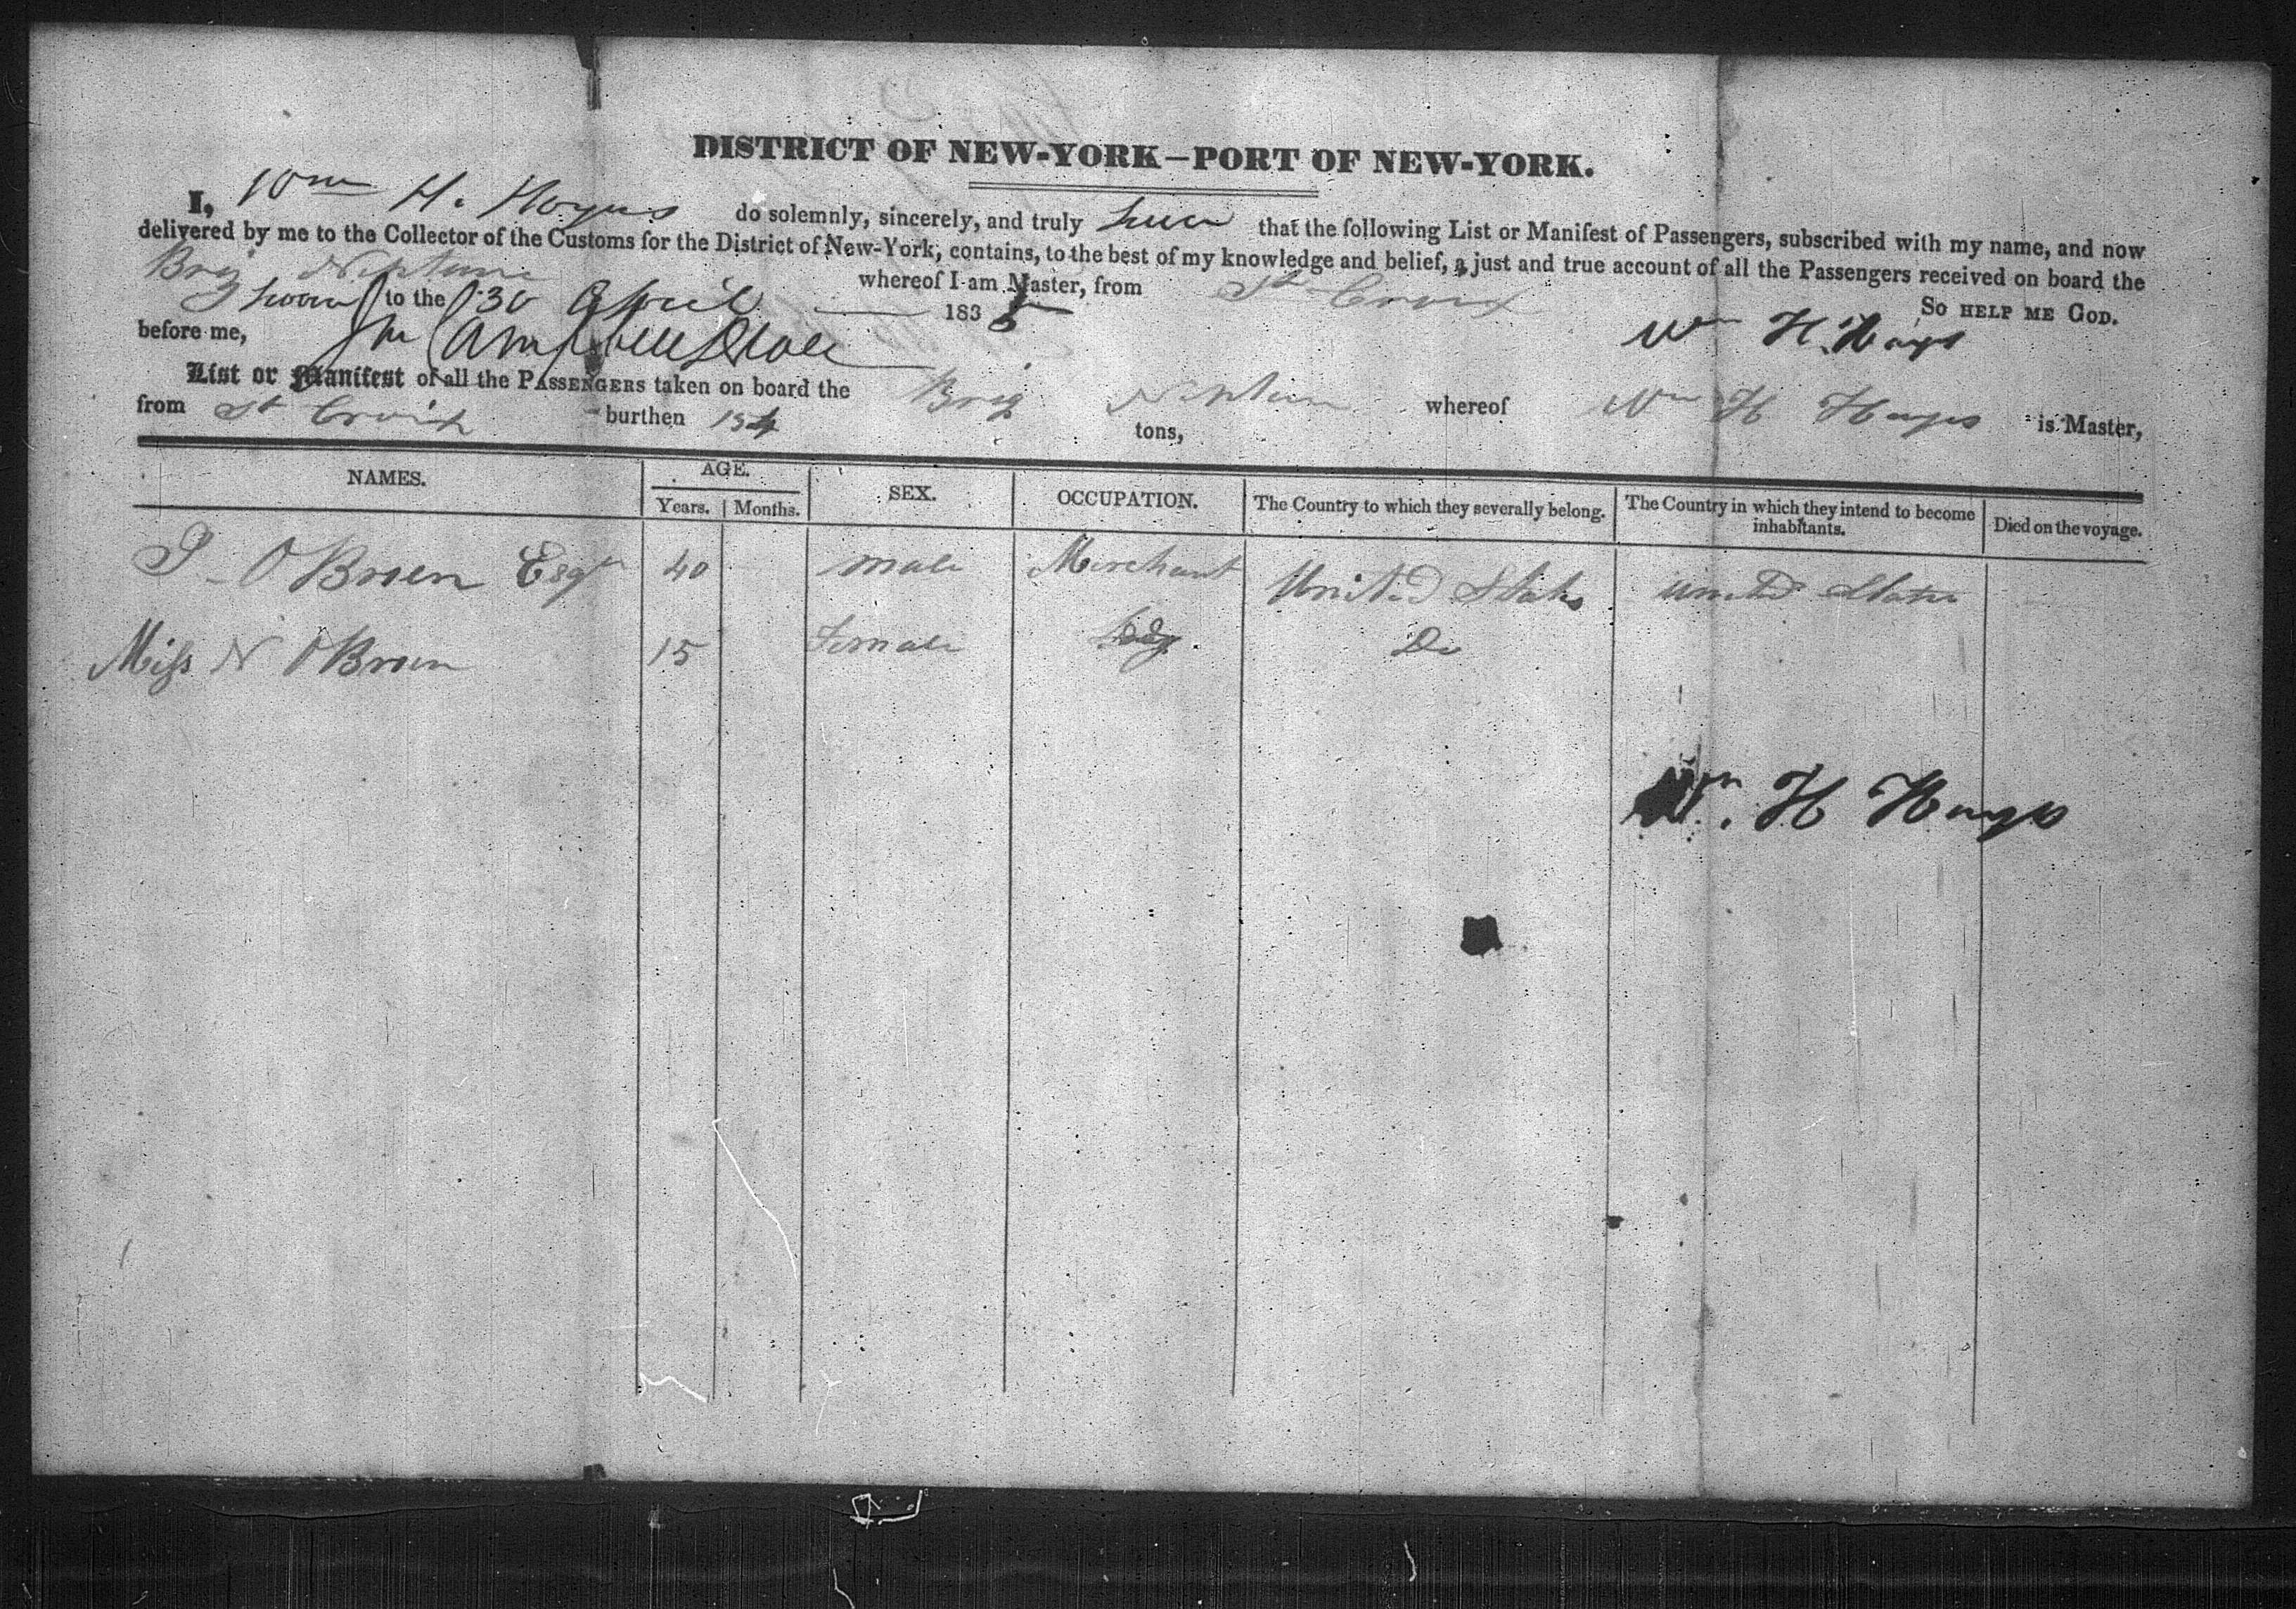 DISTRICT OF NEW-YORK—PORT OF NEW-YORK.
I, Wm H. Hayes do solemnly, sincerely, and truly swear that the following List or Manifest of Passengers, subscribed with my name, and now
delivered by me to the Collector of the Customs for the District of New-York, contains, to the best of my knowledge and belief, a just and true account of all the Passengers received on board the
Brig Neptune whereof I am Master, from St Croix
Sworn to the 30 April 1835 So HELP ME GOD.
before me, Wm H. Hays
List or Manifest of all the PASSENGERS taken on board the Brig Neptune whereof Wm H Hayes is Master,
from St Croix burthen 154 tons,
NAMES. AGE. SEX. OCCUPATION. The Country to which they severally belong. The Country in which they intend to become inhabitants. Died on the voyage.
Years. Months.
P. OBrien Esqr 40 male Merchant United States United States
Miss N OBrien 15 Female Lady. Do
Wm. H Hays